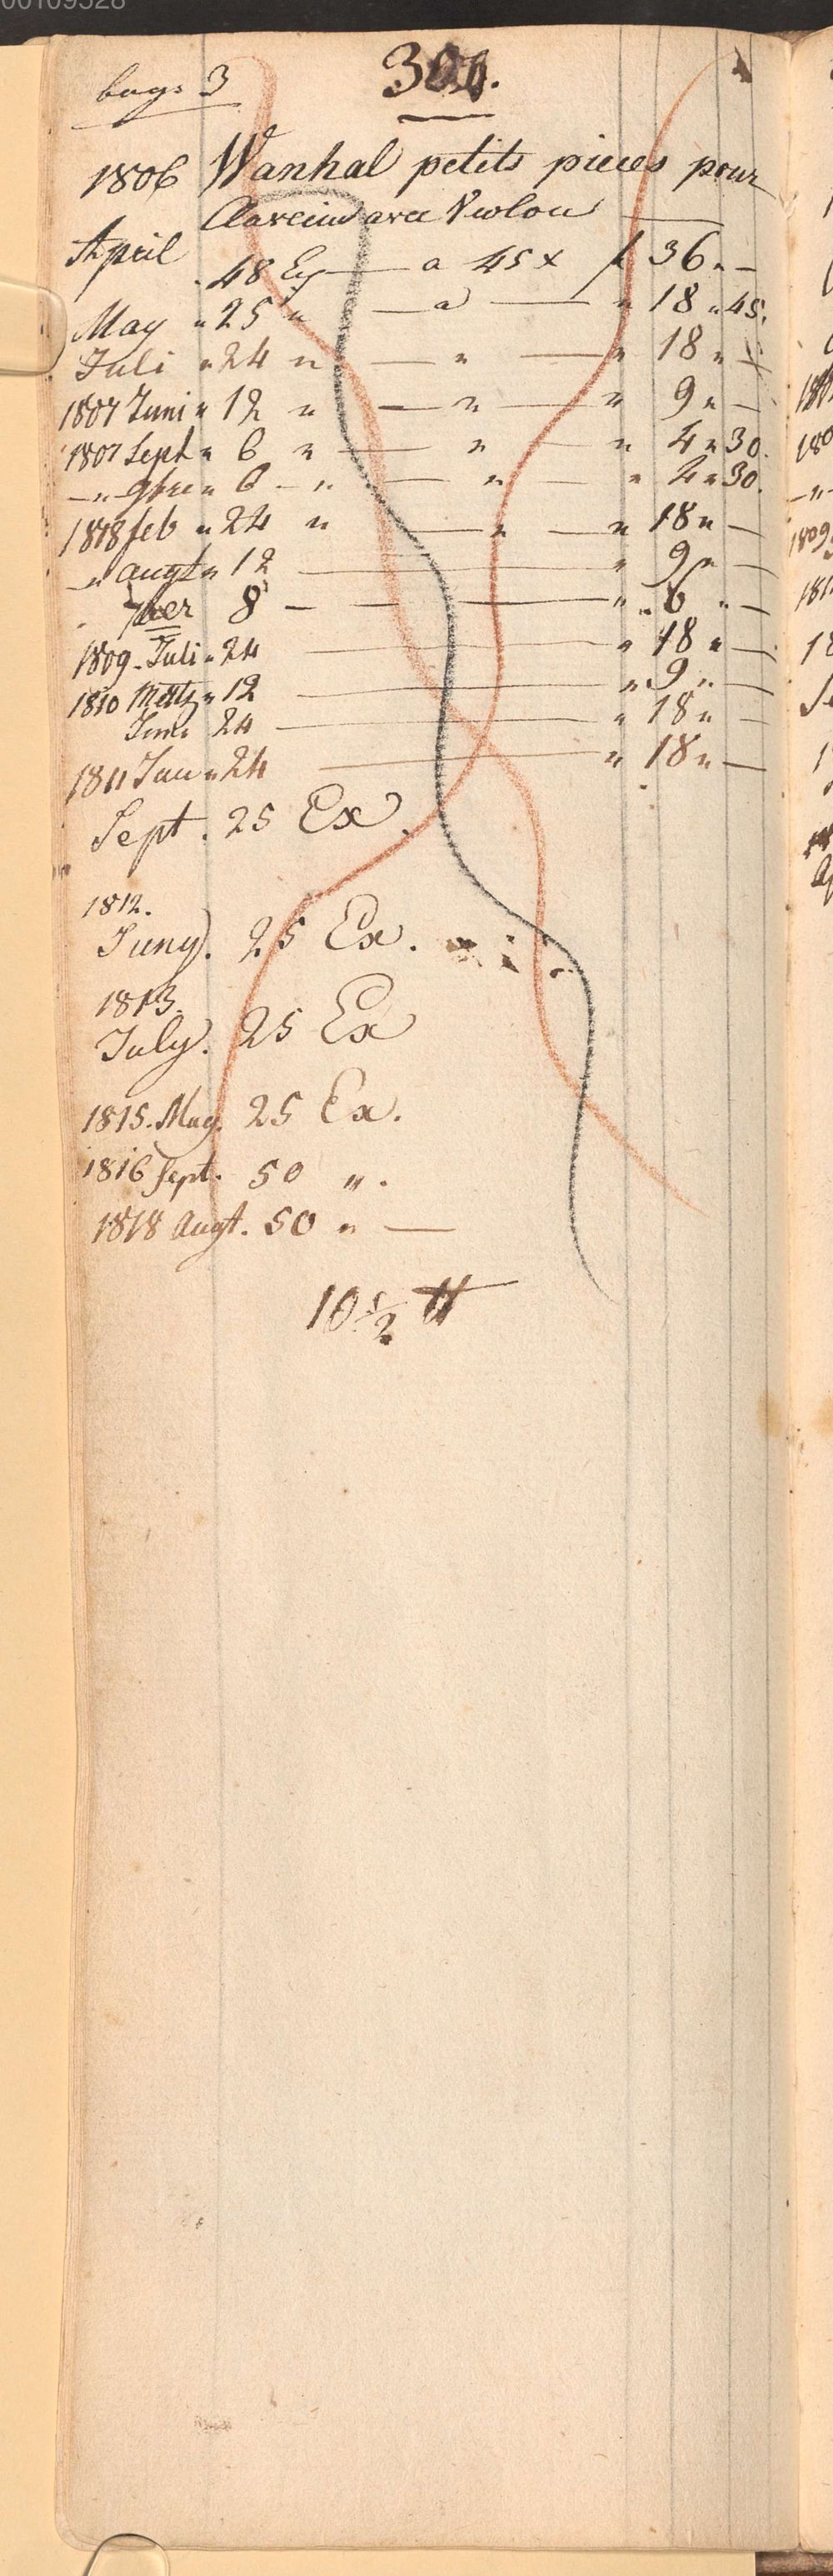 00109528
bog: 3
300.
1806 Wanhal petits pieces pour
Clavecin avec Violon
April 48 Ex — a 45 x f 36 „ —
May „ 25 „ — a — „ 18 „ 45.
Juli „ 24 „ — „ — „ 18 „ —
1807 Juni „ 12 „ — „ — „ 9 „ —
1807 Sept „ 6 „ — „ — „ 4 „ 30.
— „ 9bre „ 6 — „ — „ — „ 4 „ 30.
1808 feb „ 24 „ — „ — „ 18 „ —
„ augt „ 12 — „ 9 „ —
7ber 8 — „ 6 „ —
1809 Juli „ 24 — „ 18 „ —
1810 Mertz „ 12 — „ 9 „ —
Juni 24 — „ 18 „ —
1811 Jan „ 24 — „ 18 „ —
Sept. 25 Ex.
1812.
Juny. 25 Ex.
1813.
July. 25 Ex
1815. May. 25 Ex.
1816 Sept. 50 „.
1818 Augt. 50 „ —
10 1/2 ℔